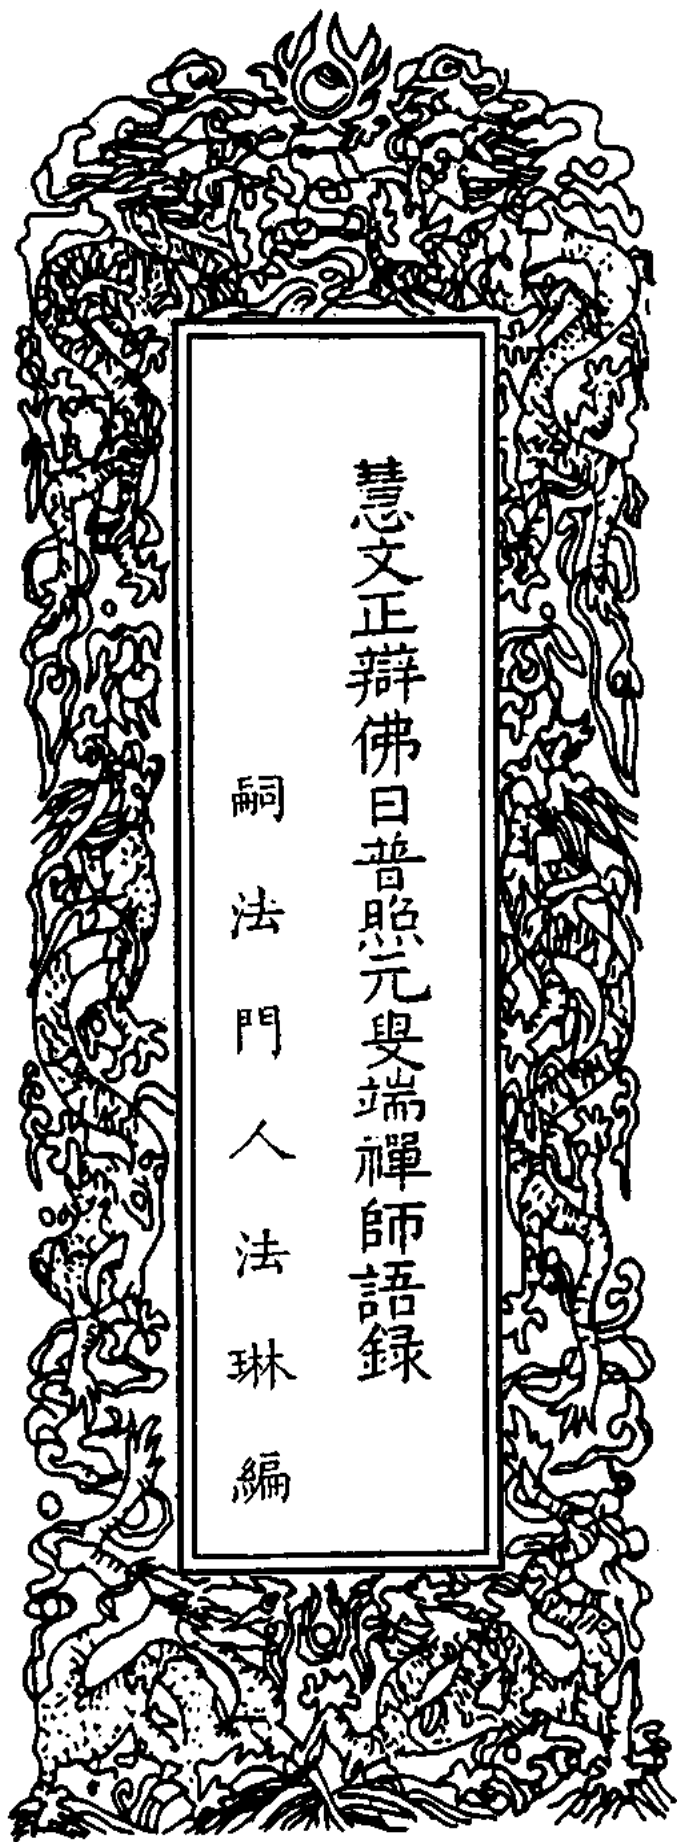 慧文正辯佛日普照元叟端禪師語録
嗣法門人法琳編